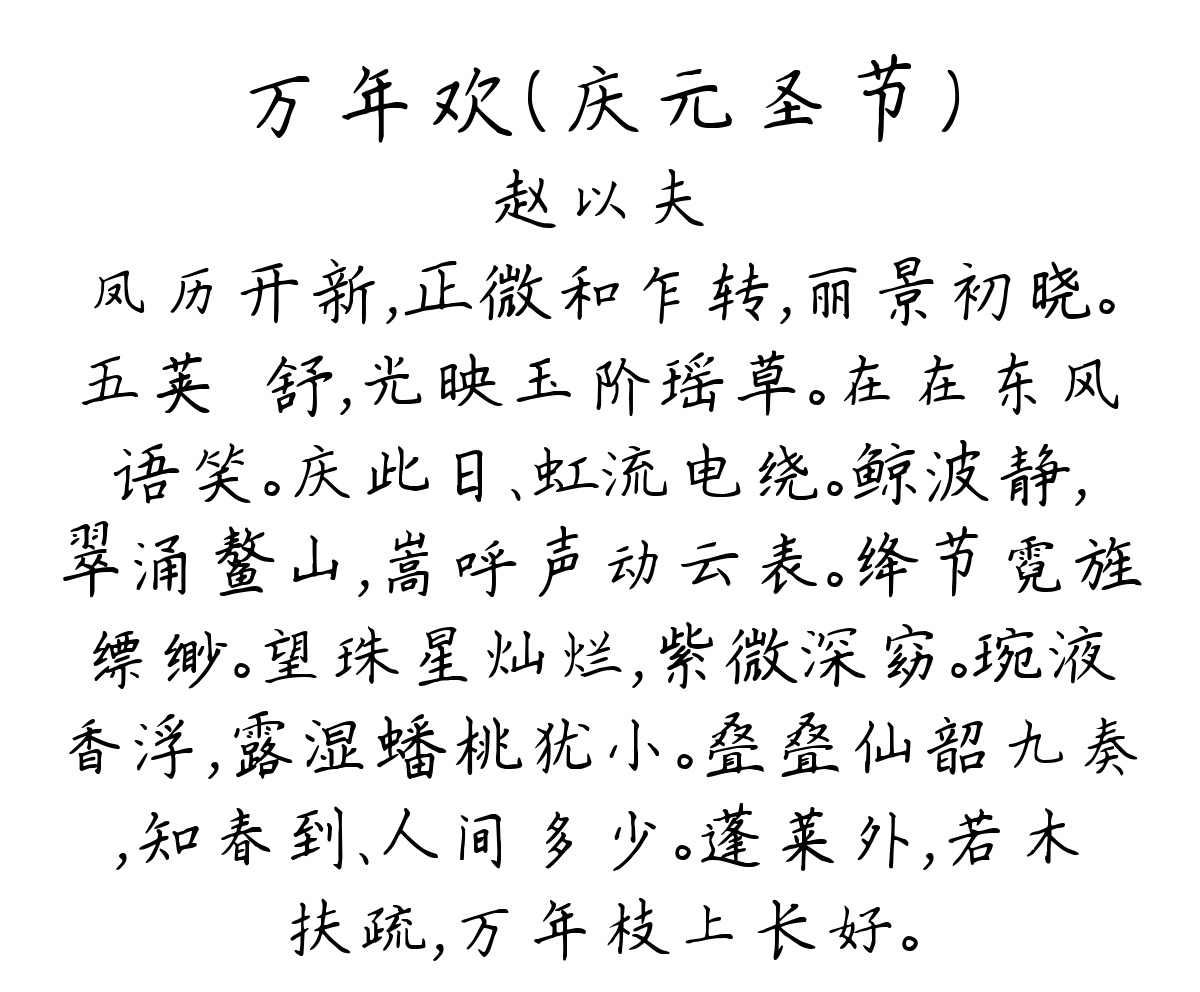 万年欢(庆元圣节)
赵以夫
凤历开新,正微和乍转,丽景初晓。
五荚 舒,光映玉阶瑶草。在在东风
语笑。庆此日、虹流电绕。鲸波静,
翠涌鳌山,嵩呼声动云表。绛节霓旌
缥缈。望珠星灿烂,紫微深窈。琬液
香浮,露湿蟠桃犹小。叠叠仙韶九奏
,知春到、人间多少。蓬莱外,若木
扶疏,万年枝上长好。